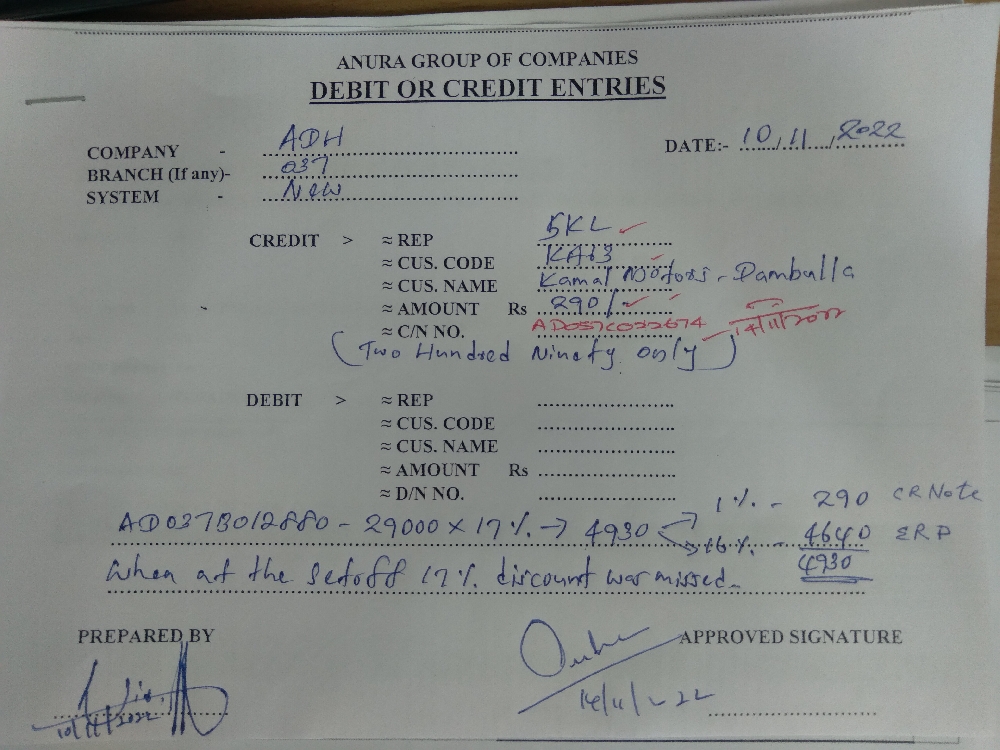 ANURA GROUP OF COMPANIES
DEBIT OR CREDIT ENTRIES
COMPANY - ADH
DATE:- 10/11/2022
BRANCH (If any)- 037
SYSTEM - New
CREDIT > ≈ REP 5KL
≈ CUS. CODE KA13
≈ CUS. NAME Kamal Motors - Dambulla
≈ AMOUNT Rs 290/-
≈ C/N NO. AD037C022674 14/11/2022
(Two Hundred Ninety only)
DEBIT > ≈ REP
≈ CUS. CODE
≈ CUS. NAME
≈ AMOUNT Rs
≈ D/N NO.
1% - 290 CR Note
AD037B012880 - 29000 x 17% → 4930
16% - 4640 ERP
4930
When at the Setoff 17% discount was missed.
PREPARED BY
APPROVED SIGNATURE
10/11/2022
14/11/22